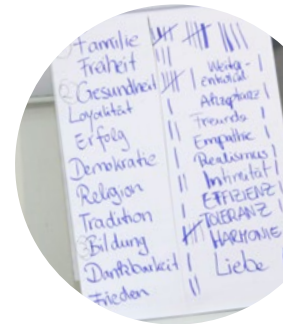 Familie
Freiheit
Gesundheit
Loyalität
Erfolg
Demokratie
Religion
Tradition
Bildung
Dankbarkeit
Frieden
Weiter-
entwickl
Akzeptanz
Freunde
Empathie
Realismus
Intimität
EFFIZIENZ
TOLERANZ
HARMONIE
Liebe